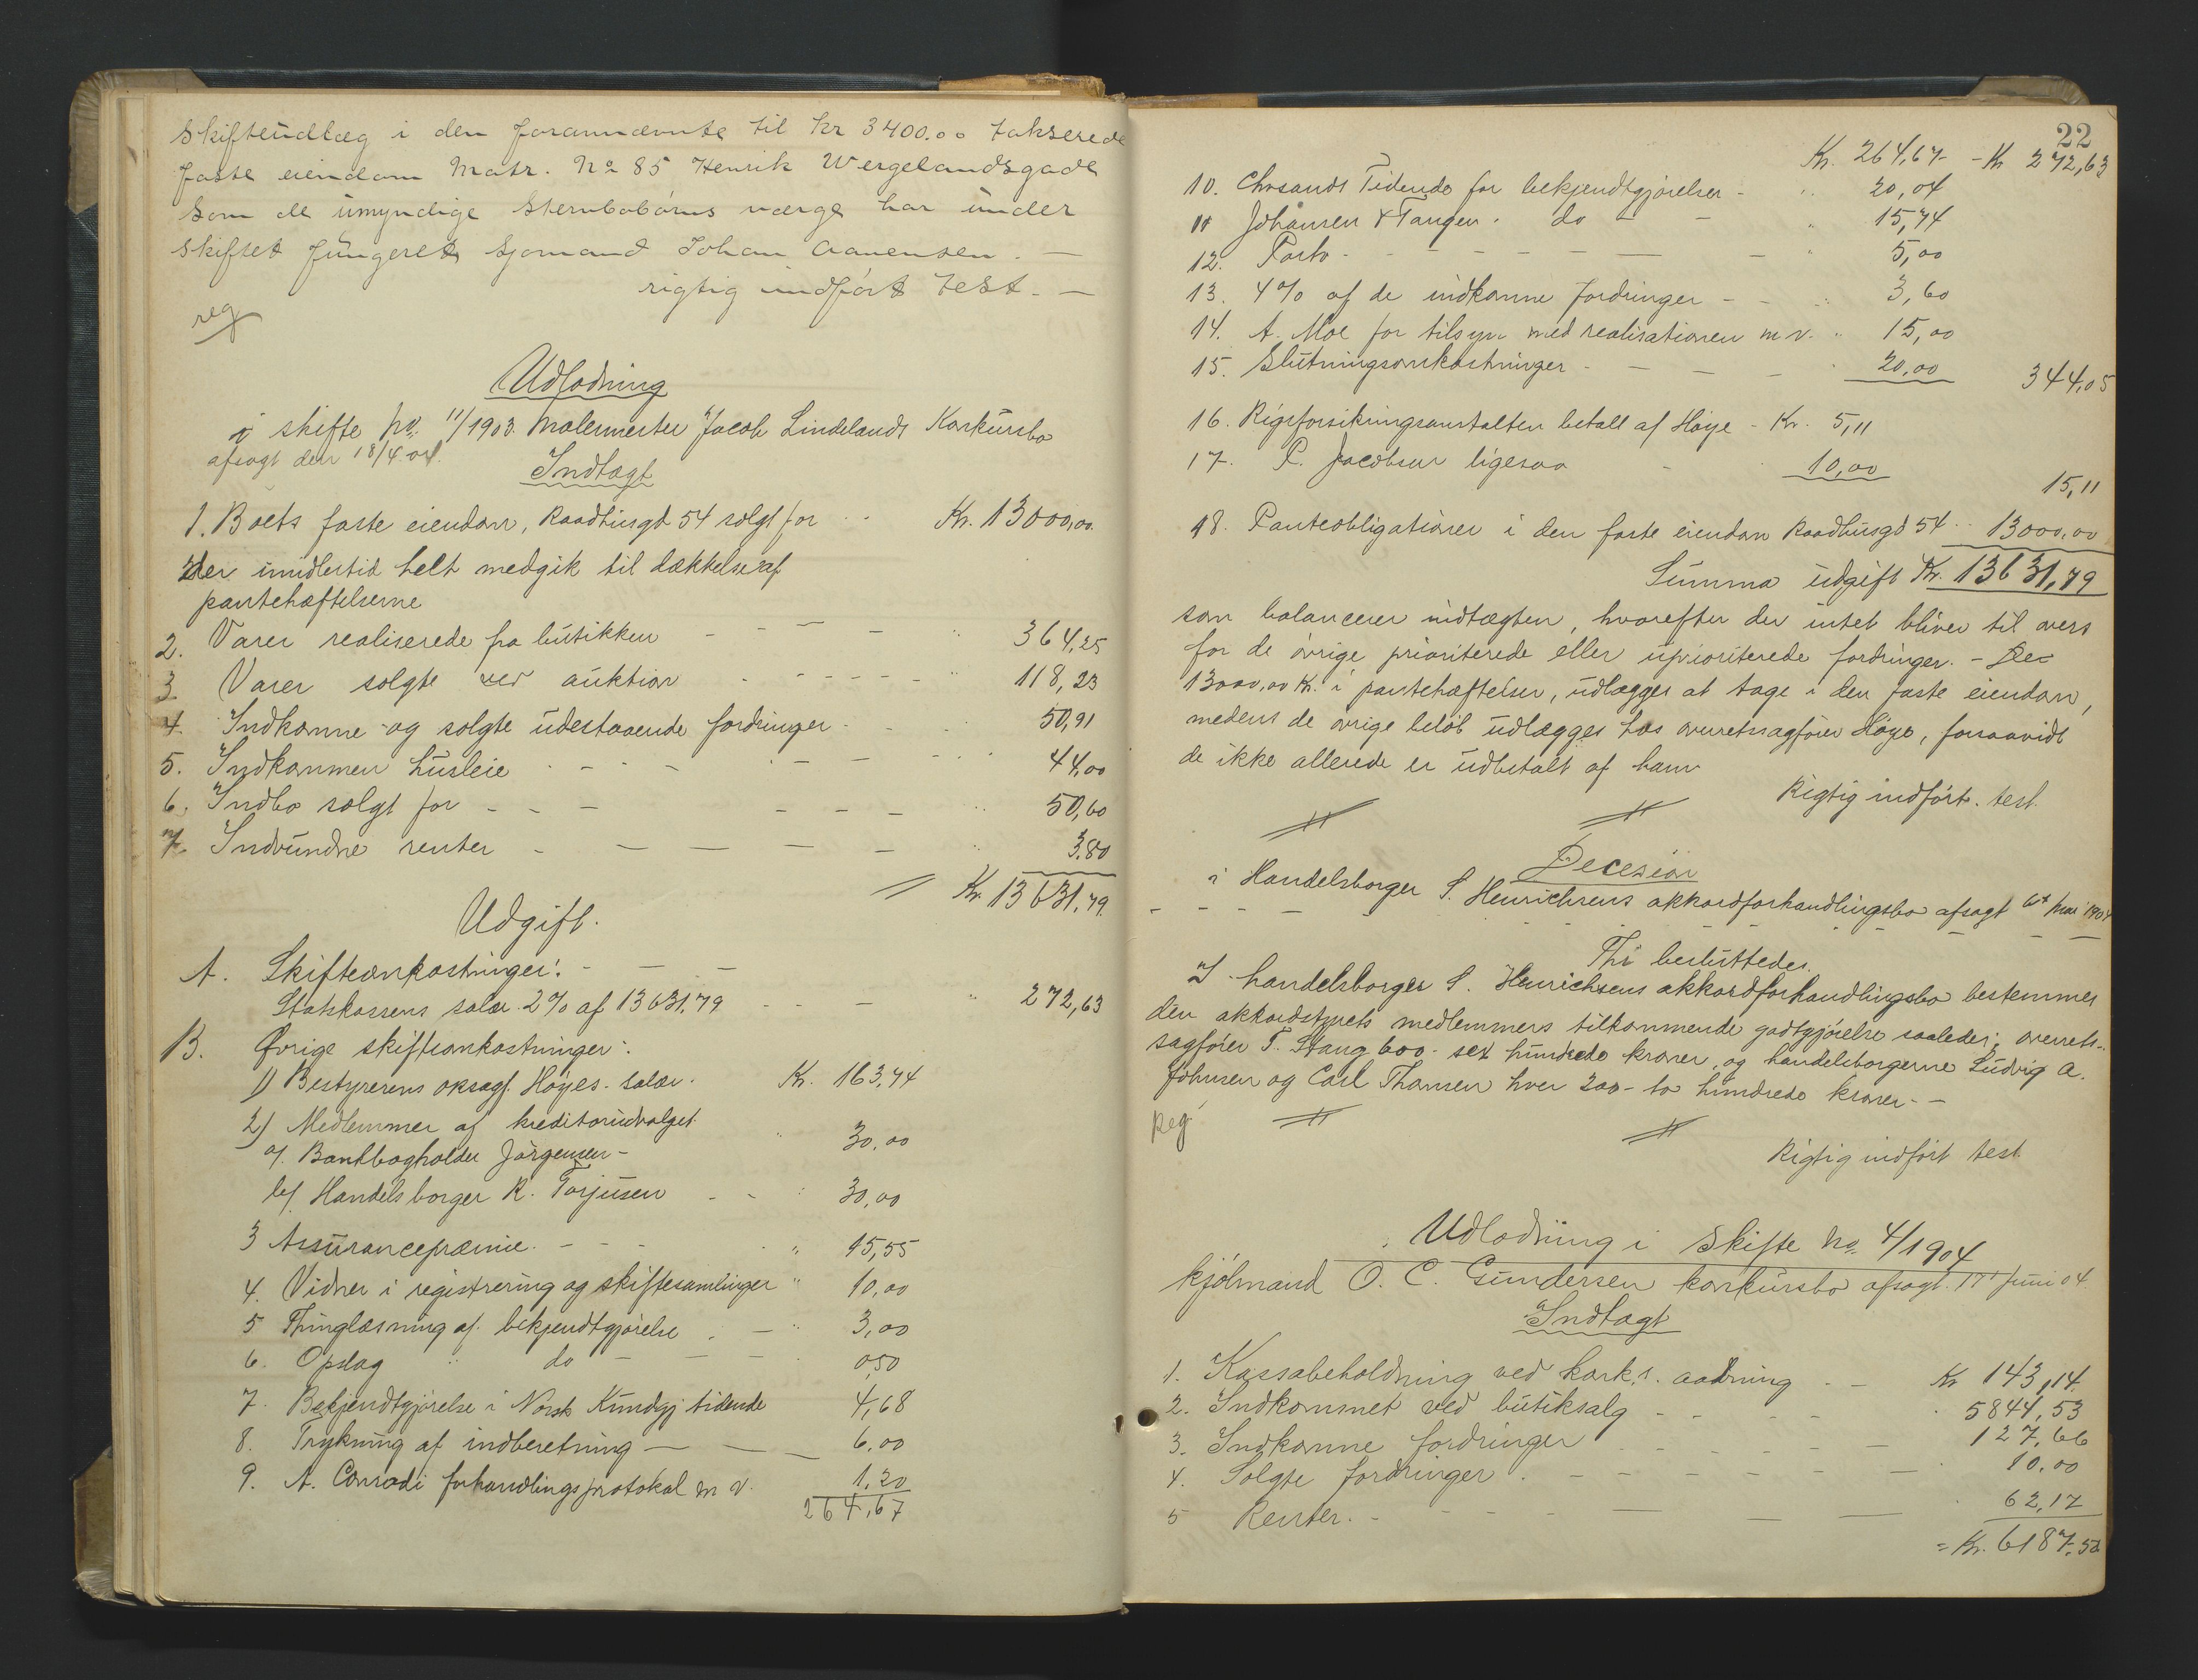 Skifteudlæg i den forannævnte til Kr 3400.00 takserede
faste eiendom Matr. No 85 Henrik Wergelandsgade
Som de umyndige Stervbobørns værge har under
Skiftet fungeret Sjømand Johan Aanensen. —
rigtig indført test. —
reg
Udlodning
i skifte no. 11/1903. Malermester Jacob Lindelands Konkursbo
afsagt den 18/4 04.
Indtægt
1. Boets faste eiendom, Raadhusgd 54 solgt for - - Kr. 13000,00.
der imidlertid helt medgik til dækkelse af
pantehæftelserne
2. Varer realiserede fra butikken - - - - " 364,25
3. Varer solgte ved auktion - - - - - " 118,23
4. Indkomne og solgte udestaaende fordringer - - - 50,91
5. Indkommen husleie - - - - - - - 44,00
6. Indbo solgt for - - - - - - " 50,60
7. Indvundne renter - - - - - " 3.80
= Kr. 13631,79.
Udgift.
A. Skifteomkostninger: - - -
Statskassens salær 2% af 13631,79 - - - " 272,63
B. Øvrige skifteomkostninger:
1) Bestyrerens oksagf. Høyes salær. Kr. 163,74
2) Medlemmer af kreditorudvalget
a/. Bankbogholder Jørgensen - " 30,00
b/. Handelsborger R. Torjusen - - : 30,00
3 Assurancepræmie. - - - " 15,55
4. Vidner i registrering og skiftesamlinger " 10,00
5 Thinglæsning af bekjendtgjørelse . - " 3,00
6. Opslag " do - - - 0,50
7. Bekjendtgjørelse i Norsk Kundgj. tidende 4,68
8. Trykning af indberetning - - - 6,00
9. A. Conradi forhandlingsprotokol m v. 1,20
264,67
22
Kr. 264,67 - Kr 272,63
10. Chrsands Tidende for bekjendtgjørelser - " 20,04
11 Johansen & Tangen. do - - " 15,74
12. Porto - - - - - - - - " 5,00
13. 4% af de indkomne fordringer - - " 3,60
14. A. Moe for tilsyn med realisationen m v. " 15,00
15. Slutningsomkostninger - - - - " 20,00 344,05
16. Rigsforsikringsanstalten betalt af Høye - Kr. 5,11
17. P. Jacobsen ligesaa - 10,00
15,11
18. Panteobligationer i den faste eiendom Raadhusgd 54 - - 13000,00
Summa udgift Kr. 13631,79
som balancerer indtægten, hvorefter der intet bliver til overs
for de øvrige prioriterede eller uprioriterede fordringer. - De
13000,00 Kr. i pantehæftelser, udlægges at tage i den faste eiendom,
medens de øvrige beløb udlægges hos overretssagfører Høye, forsaavidt
de ikke allerede er udbetalt af ham
Rigtig indført. test.
Decesion
i Handelsborger S. Henrichsens akkordforhandlingsbo afsagt 6te Mai 1904
Thi besluttedes
I handelsborger S. Henrichsens akkordforhandlingsbo bestemmes
den akkordstyrets medlemmers tilkommende godtgjørelse saaledes: overrets-
sagfører T. Stang 600 - sex hundrede kroner, og handelsborgerne Ludvig A.
Johnsen og Carl Thomsen hver 200 - to hundrede kroner - -
Reg
Rigtig indført test
Udlodning i Skifte no. 4/1904
kjølmand O. C. Gundersen konkursbo afsagt. 17' Juni 04.
Indtægt
1. Kassabeholdning ved konk.s. aabning - - Kr 143,14
2. Indkommet ved butiksalg - - - - 5844,53
3. Indkomne fordringer - - - - - 127,66
4. Solgte fordringer . - - - - - - 10,00
5 Renter. - - - - - - 62,17
= Kr. 6187,50